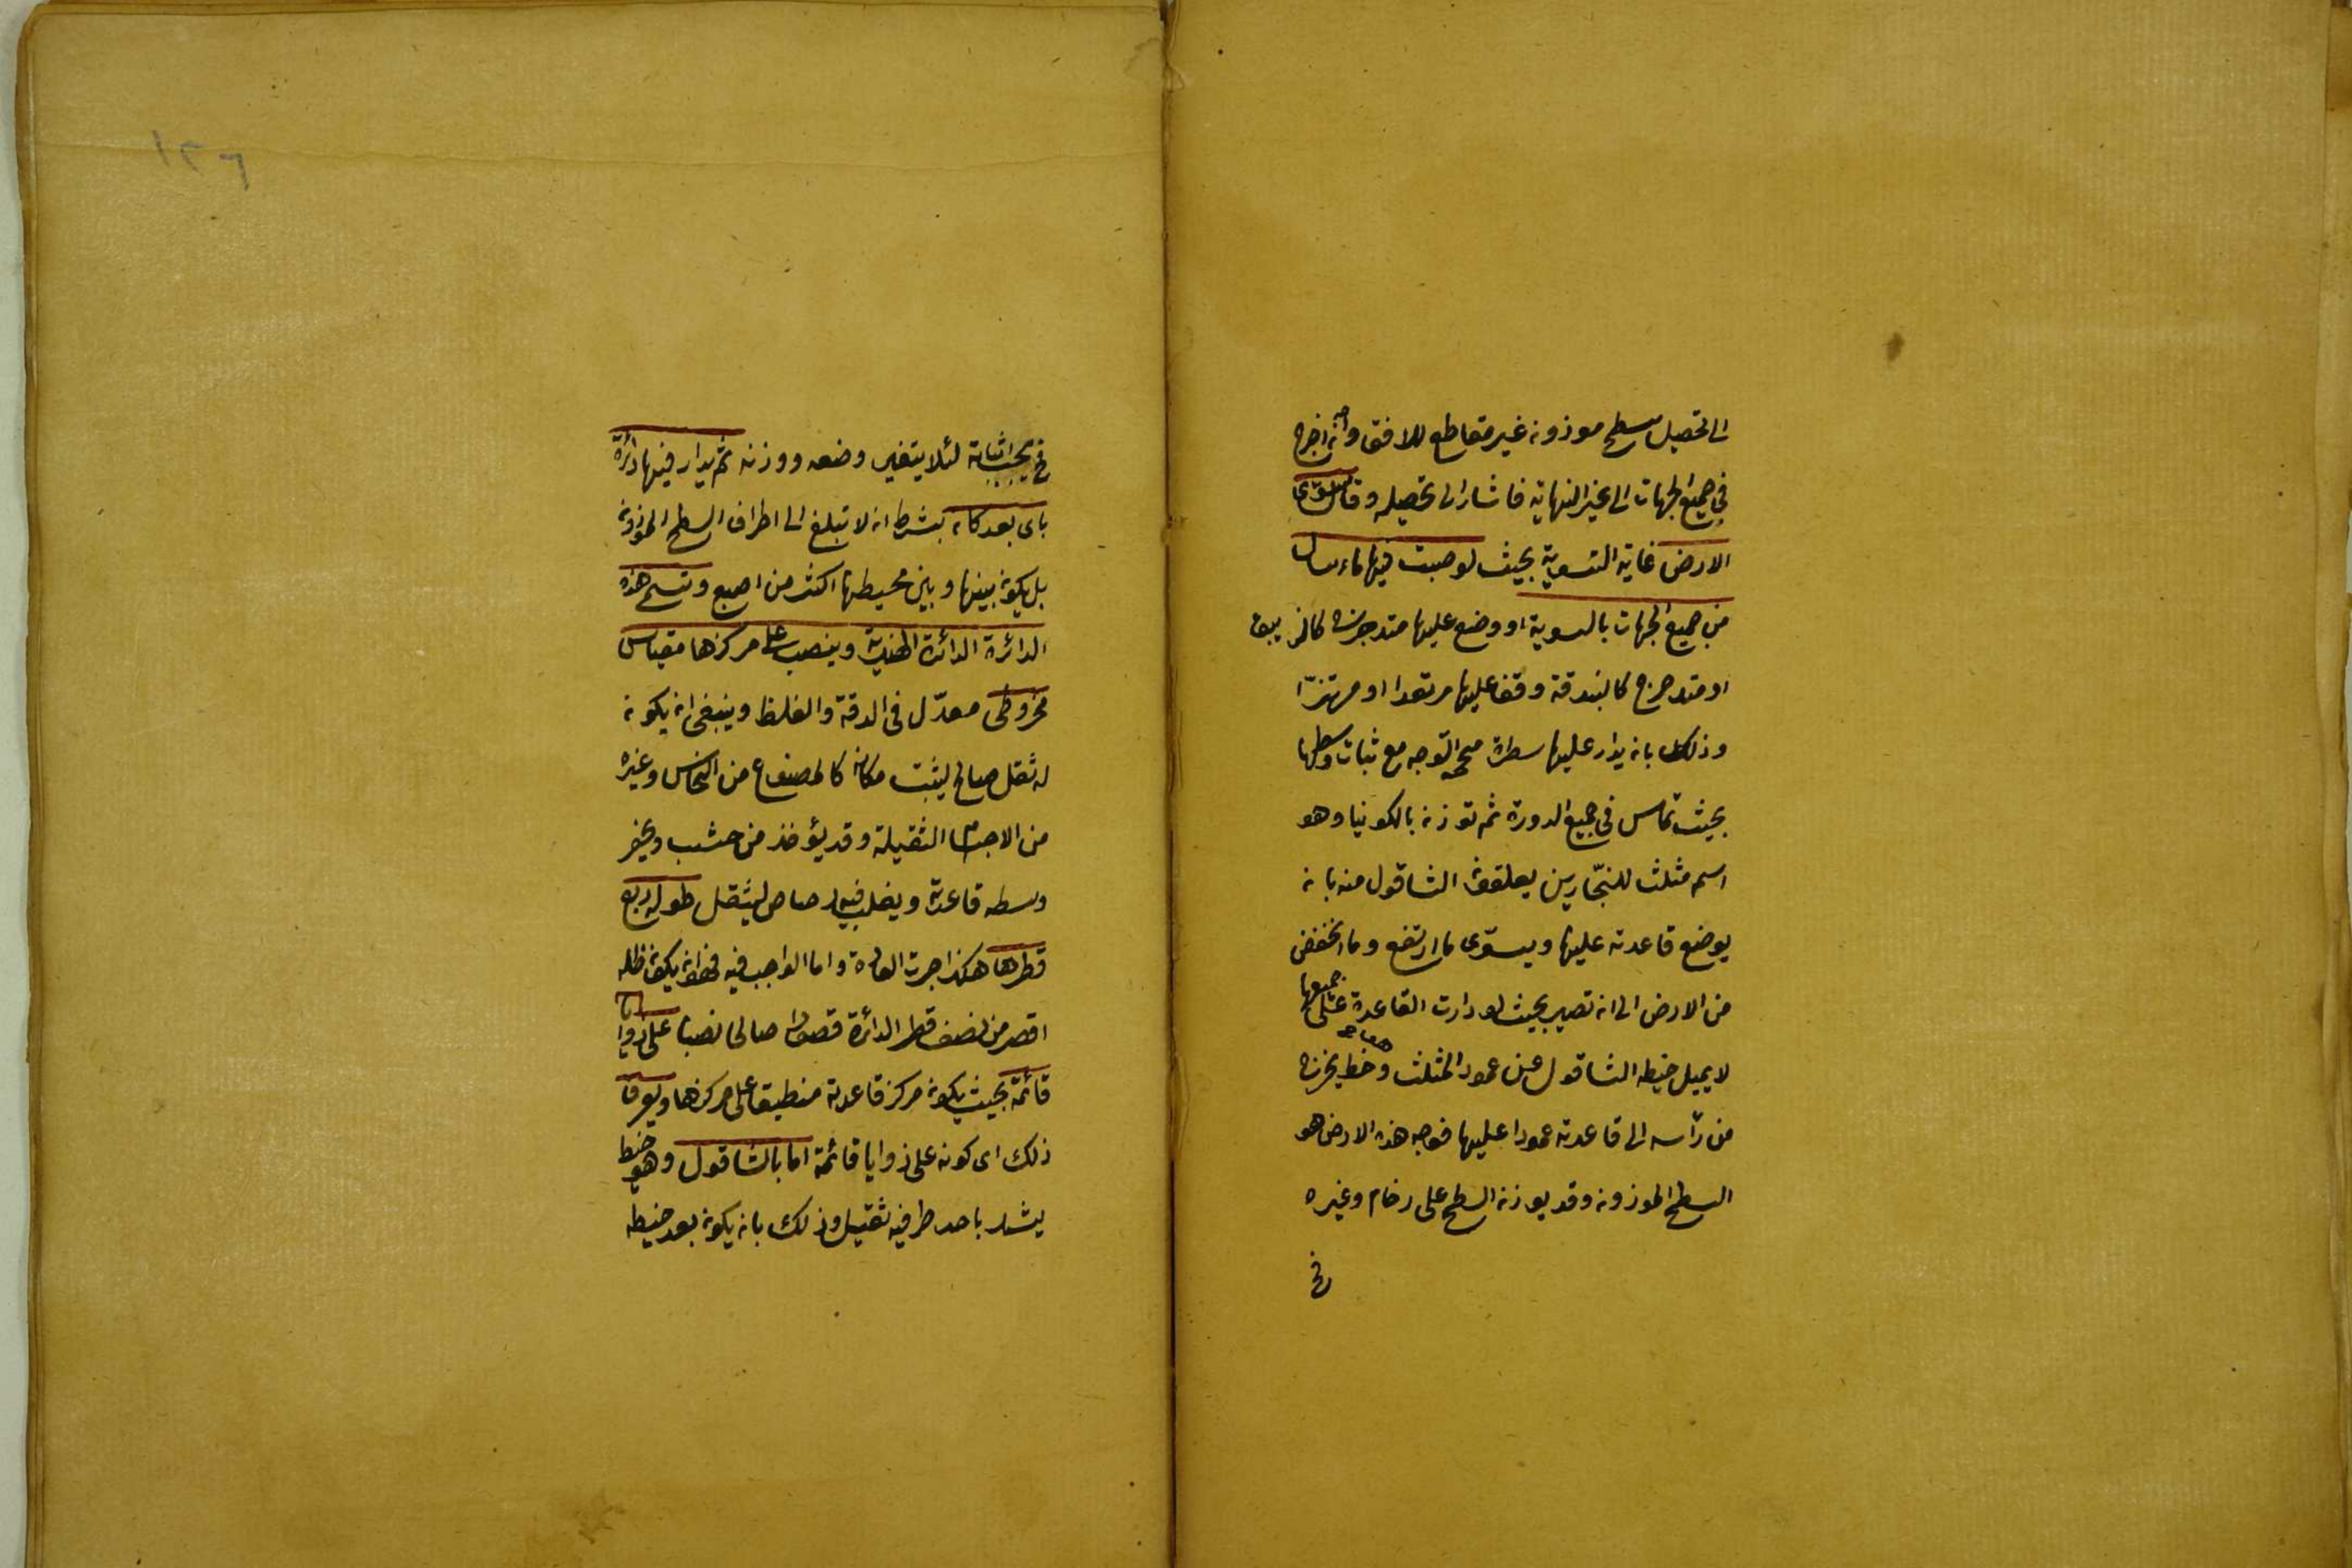 الى تحصيل سطح موزون غير مقاطع للافق وان اخرج
في جميع الجهات الى غير النهاية فاشار الى تحصيله وقال سوى
الارض غاية التسوية بحيث لو صبت فيها ماء سال
من جميع الجهات بالسوية او وضع عليها متدحرج كالزيبق
او متدحرج كالبندقة وقف عليها مرتعدا او مهتزّا
وذلك بان يدار عليها مسطرة صحيحة التوجه مع ثبات وسطها
بحيث تماس في جميع الدورة ثم توزن بالكونيا وهو
اسم مثلث للنجّارين يعلقون الشاقول منه بان
يوضع قاعدته عليها ويسوّى ما ارتفع وما انخفض
من الارض الى ان تصير بحيث لو دارت القاعدة على جميعها
لا يميل خيط الشاقول عن عمود المثلث وهو خط يخرج
من رأسه الى قاعدته عمودا عليها فوجه هذه الارض هو
السطح الموزون وقد يوزن السطح على رخام وغيره
فح
فح يجب اثباته لئلا يتغير وضعه ووزنه ثم يدار فيها دائرة
باى بعد كان بشرط ان لا تبلغ الى اطراف السطح الموزون
بل يكون بينها وبين محيطها اكثر من اصبع وتسمى هذه
الدائرة الدائرة الهندية وينصب على مركزها مقياس
مخروطى معدّل فى الدقة والغلظ وينبغى ان يكون
له ثقل صالح ليثبت مكانه كالمصنوع من النحاس وغيره
من الاجسام الثقيلة وقد يؤخذ من خشب ويحفر
وسط قاعدته ويصب فيه رصاص ليثقل طوله ربع
قطرها هكذا جرت العادة واما الواجب فيه فهو ان يكون ظله
اقصر من نصف قطر الدائرة قصورا صالحا نصبا على زوايا
قائمة بحيث يكون مركز قاعدته منطبقا على مركزها ويعرف
ذلك اى كونه على زوايا قائمة اما بالشاقول وهو خيط
يشد باحد طرفيه ثقيل وذلك بان يكون بعد خيطه
١٣٦